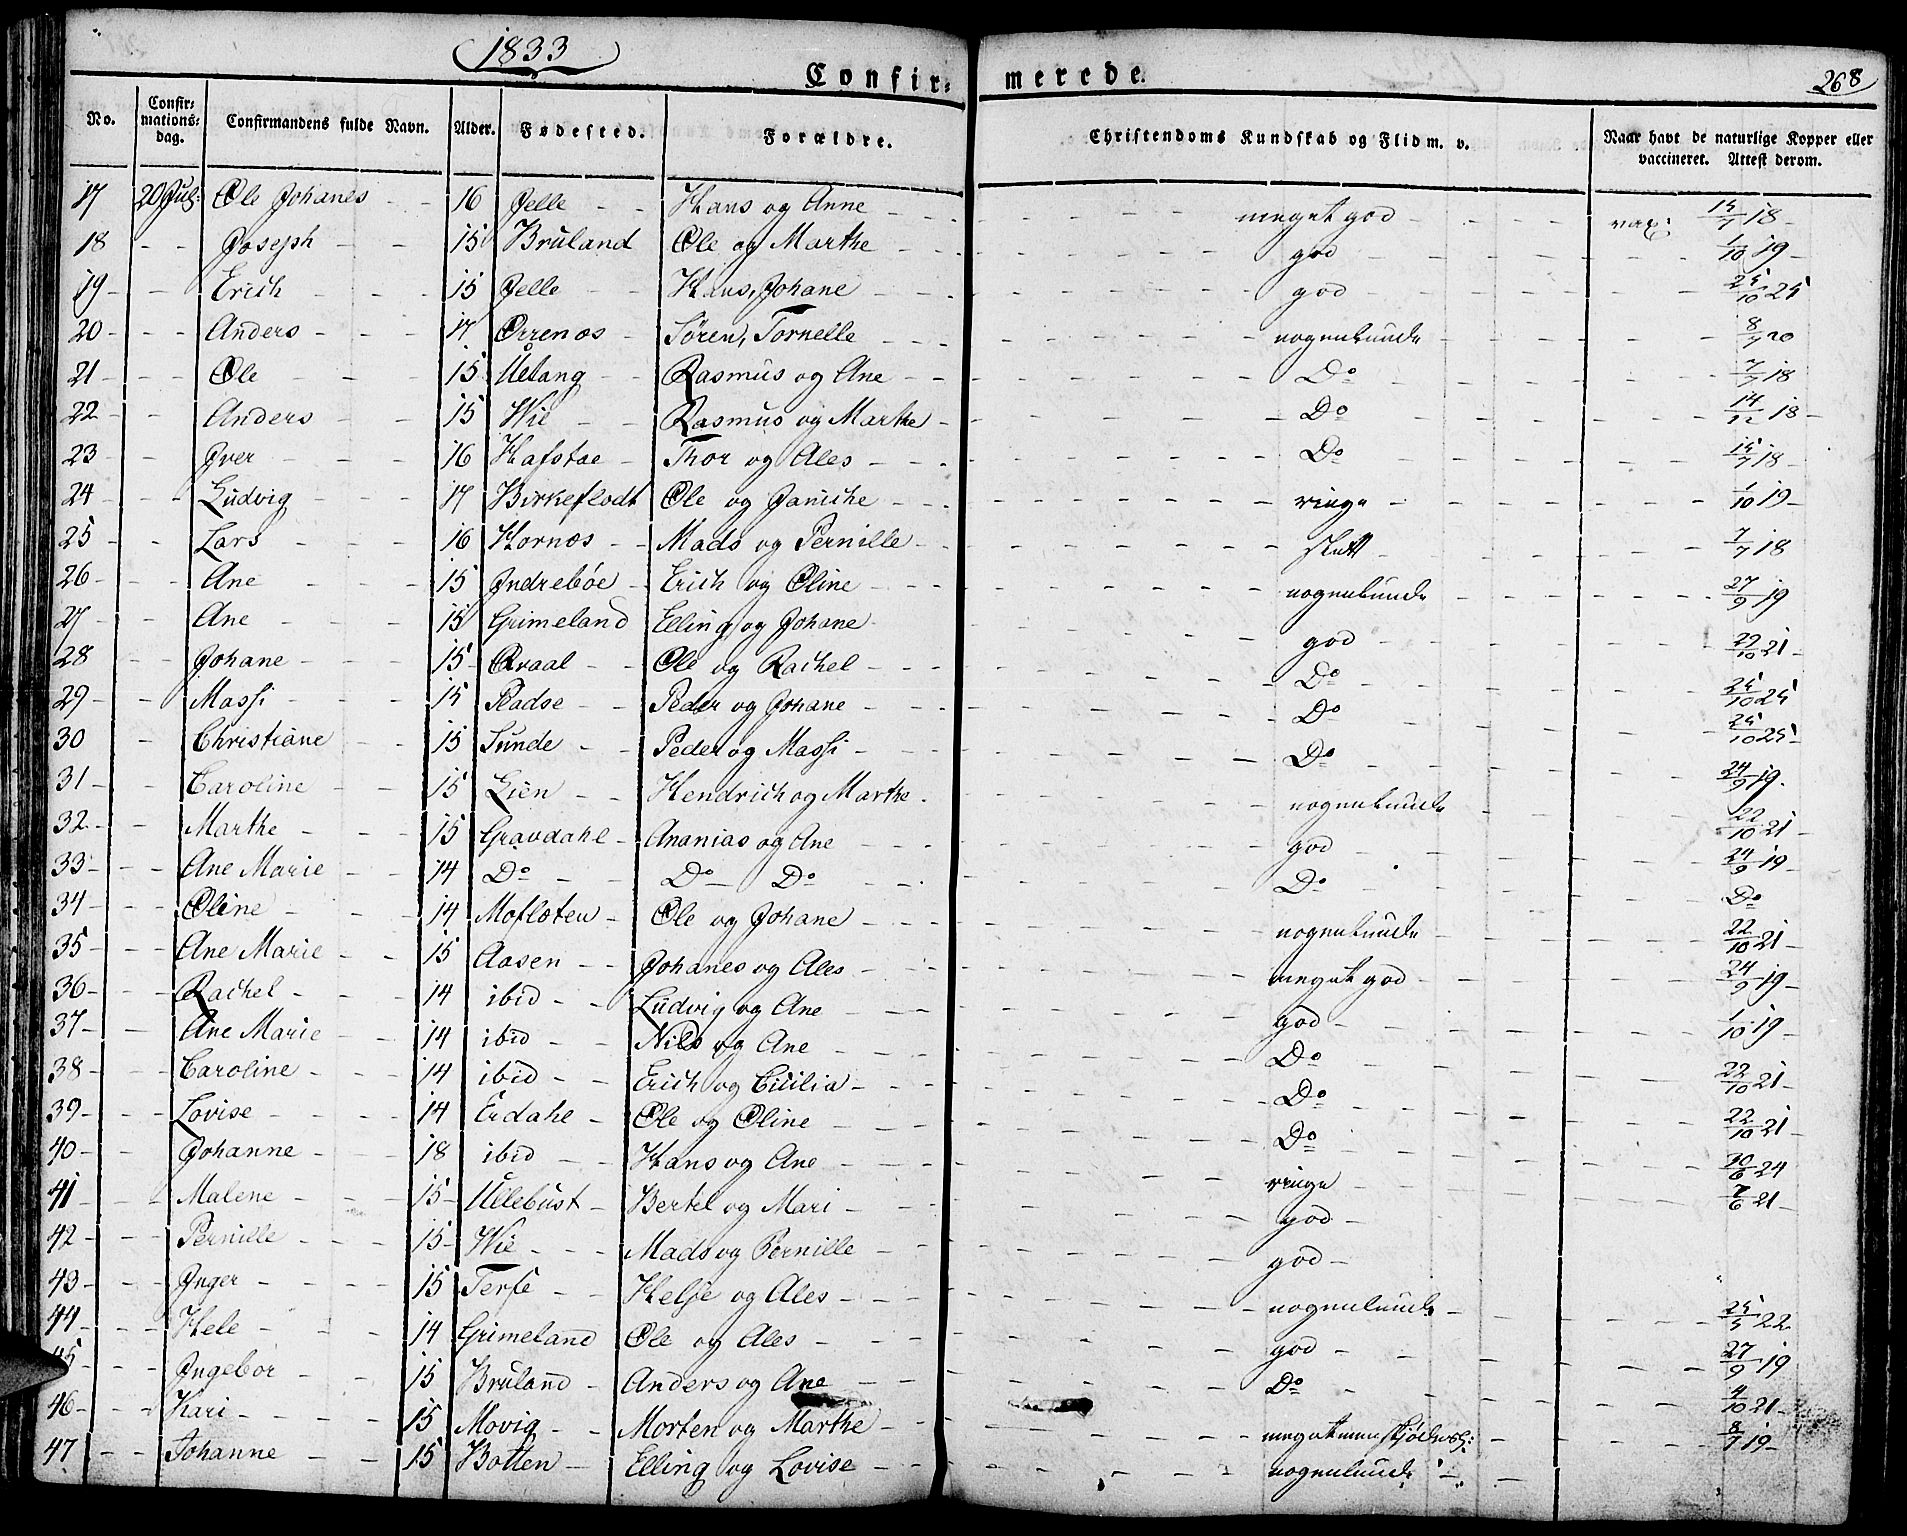 1833
Confir- merede. 268
No. Confir-mations-dag. Confirmandens fulde Navn. Alder. Fødested. Forældre. Christendoms Kundskab og Flid m. v. Naar havt de naturlige Kopper eller vaccineret. Attest derom.
17 20 Jul: Ole Johanes 16 Jelle Hans og Anne meget god vax: 15/7 18
18 Joseph 15 Bruland Ole og Marthe god 1/10 19
19 Erich 15 Jelle Hans, Johane god 25/10 25
20 Anders 17 Orrenæs Sören, Tornelle nogenlunde 8/7 20
21 Ole 15 Uelang Rasmus og Ane Do 7/7 18
22 Anders 15 Wie Rasmus og Marthe Do 14/12 18
23 Iver 16 Hafstae Thor og Ales Do 15/7 18
24 Ludvig 17 Birkeflodt Ole og Janiche ringe 1/10 19
25 Lars 16 Hornæs Mads og Pernille slett 7/7 18
26 Ane 15 Indrebøe Erich og Oline nogenlunde 27/9 19
27 Ane 15 Grimeland Elling og Johane god 22/10 21
28 Johane 15 Qvaal Ole og Rachel Do
29 Massi 15 Stadse Peder og Johane Do 25/10 25
30 Christiane 15 Sunde Peder og Massi Do 25/10 25
31 Caroline 15 Lien Hendrich og Marthe nogenlunde 24/9 19
32 Marthe 15 Gravdahl Ananias og Ane god 22/10 21
33 Ane Marie 14 Do Do Do Do 24/9 19
34 Oline 14 Moflaten Ole og Johane nogenlunde Do
35 Ane Marie 15 Aasen Johanes og Ales meget god 22/10 21
36 Rachel 14 ibid Ludvig og Ane god 24/9 19
37 Ane Marie 14 ibid Nils og Ane Do 1/10 19
38 Caroline 14 ibid Erich og Cicilia Do 22/10 21
39 Lovise 14 Erdahl Ole og Oline Do 22/10 21
40 Johanne 18 ibid Hans og Ane ringe 30/6 24
41 Malene 15 Uelebust Bertel og Mari god 7/6 21
42 Pernille 15 Wie Mads og Pernille god
43 Inger 15 Terse Helje og Ales nogenlunde
44 Hele 14 Grimeland Ole og Ales god 25/5 22
45 Ingebor 15 Bruland Anders og Ane Do 27/9 19
46 Kari 15 Movig Morten og Marthe meget 4/10 21
47 Johanne 15 Botten Elling og Lovise nogenlunde 8/7 19